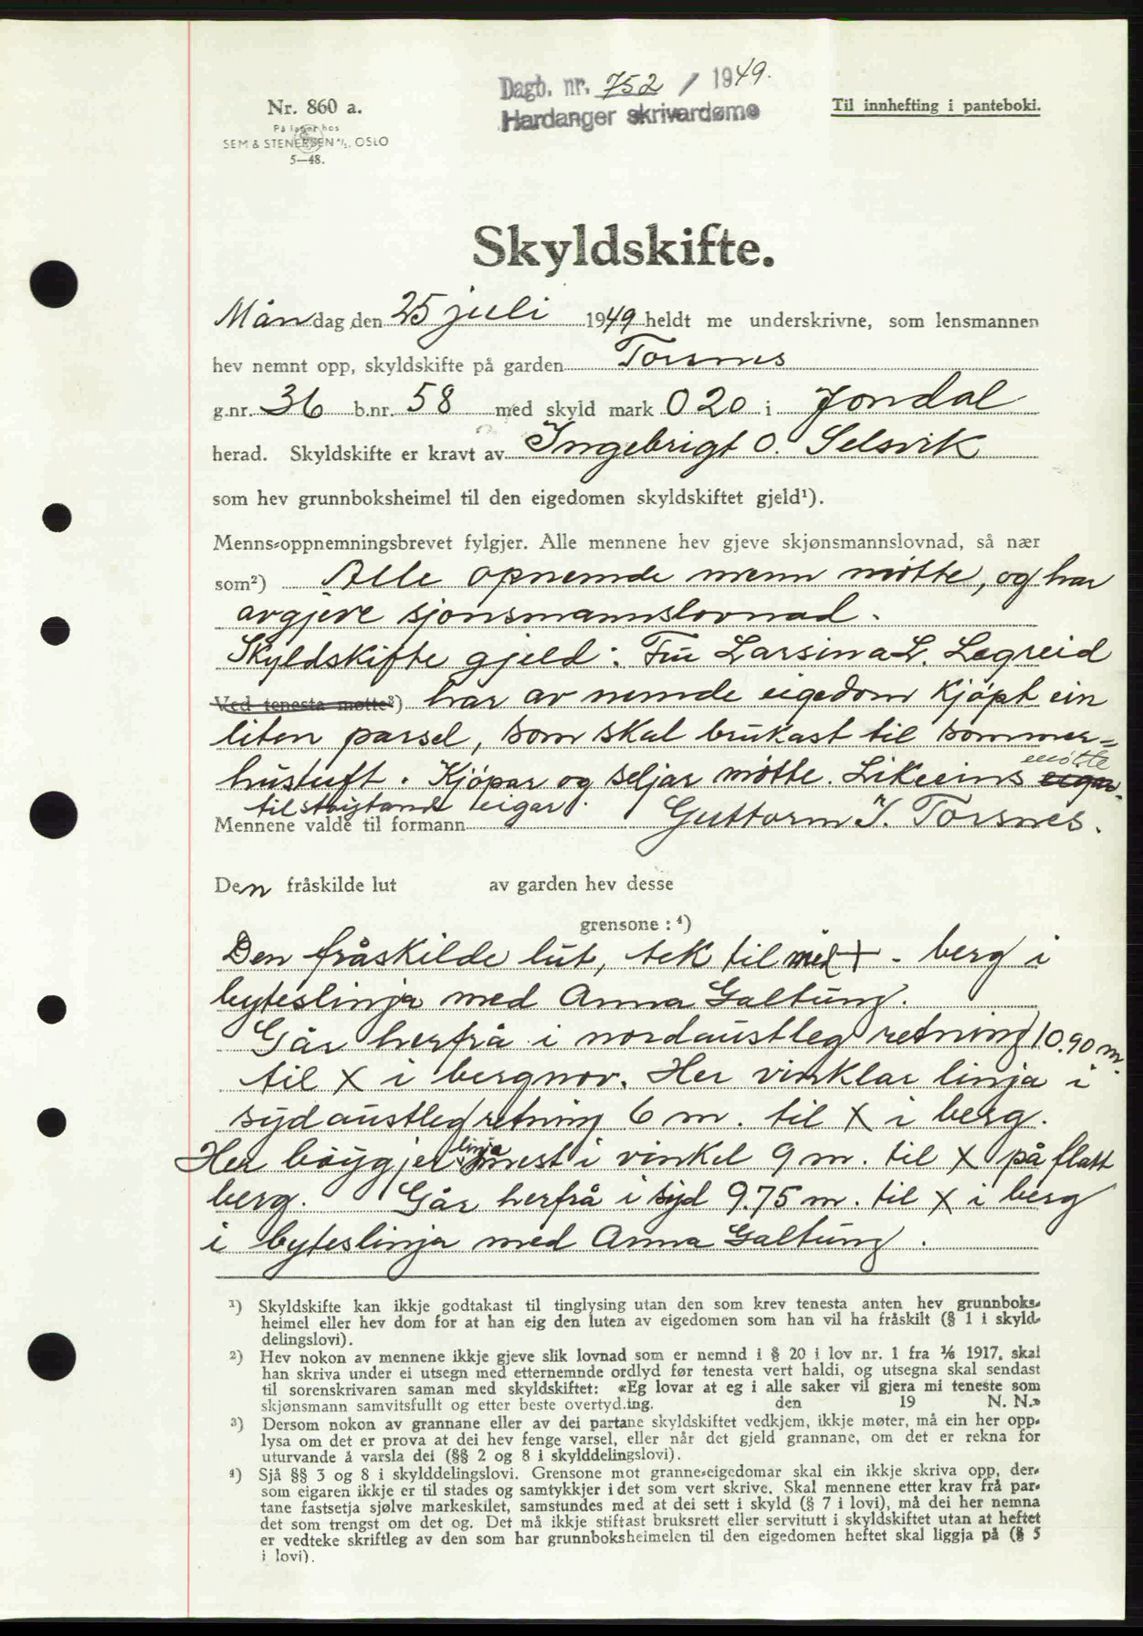 Dagb. nr. 752 / 1949.
Hardanger skrivardøme
Til innhefting i panteboki.
Nr. 860 a.
På lager hos
SEM & STENERSEN A/S, OSLO
5—48.
Skyldskifte.
Måndag den 25 juli 1949 heldt me underskrivne, som lensmannen
hev nemnt opp, skyldskifte på garden Torsnes
g.nr. 36 b.nr. 58 med skyld mark 0 20 i Jondal
herad. Skyldskifte er kravt av Ingebrigt O. Selsvik
som hev grunnboksheimel til den eigedomen skyldskiftet gjeld¹).
Menns-oppnemningsbrevet fylgjer. Alle mennene hev gjeve skjønsmannslovnad, så nær
som²) Alle opnemde menn møtte, og har
avgjeve sjønsmannslovnad.
Skyldskifte gjeld: Fru Larsina L. Legreid
Ved tenesta møtte³) har av nemde eigedom kjöpt ein
liten parsel, som skal brukast til sommer=
hustuft. Kjöpar og seljar møtte. Likeeins møtte eigar
tilstøytande eigar.
Mennene valde til formann Guttorm J. Torsnes.
Den fråskilde lut av garden hev desse
grensone : ⁴)
Den fråskilde lut, tek til med + - berg i
byteslinja med Anna Galtung.
Går herfrå i nordaustleg retning 10.90 m.
til X i bergnov. Her vinklar linja i
sydaustleg retning 6 m. til X i berg.
Her böygjer linja mest i vinkel 9 m. til X på flatt
berg. Går herfrå i syd 9.75 m. til X i berg
i byteslinja med Anna Galtung.
¹) Skyldskifte kan ikkje godtakast til tinglysing utan den som krev tenesta anten hev grunnboks-
heimel eller hev dom for at han eig den luten av eigedomen som han vil ha fråskilt (§ 1 i skyld-
delingslovi).
²) Hev nokon av mennene ikkje gjeve slik lovnad som er nemnd i § 20 i lov nr. 1 fra 1/6 1917, skal
han skriva under ei utsegn med etternemnde ordlyd før tenesta vert haldi, og utsegna skal sendast
til sorenskrivaren saman med skyldskiftet: «Eg lovar at eg i alle saker vil gjera mi teneste som
skjønsmann samvitsfullt og etter beste overtyd.ing. den 19 N. N.»
³) Dersom nokon av grannane eller av dei partane skyldskiftet vedkjem, ikkje møter, må ein her opp-
lysa om det er prova at dei hev fenge varsel, eller når det gjeld grannane, om det er rekna for
uturvande å varsla dei (§§ 2 og 8 i skylddelingslovi).
⁴) Sjå §§ 3 og 8 i skylddelingslovi. Grensone mot granne-eigedomar skal ein ikkje skriva opp, der-
som eigaren ikkje er til stades og samtykkjer i det som vert skrive. Skal mennene etter krav frå par-
tane fastsetja sjølve markeskilet, samstundes med at dei sett i skyld (§ 7 i lovi), må dei her nemna
det som trengst om det og. Det må ikkje stiftast bruksrett eller servitutt i skyldskiftet utan at heftet
er vedteke skriftleg av den som har grunnboksheimelen til den eigedomen heftet skal liggja på (§ 5
i lovi).